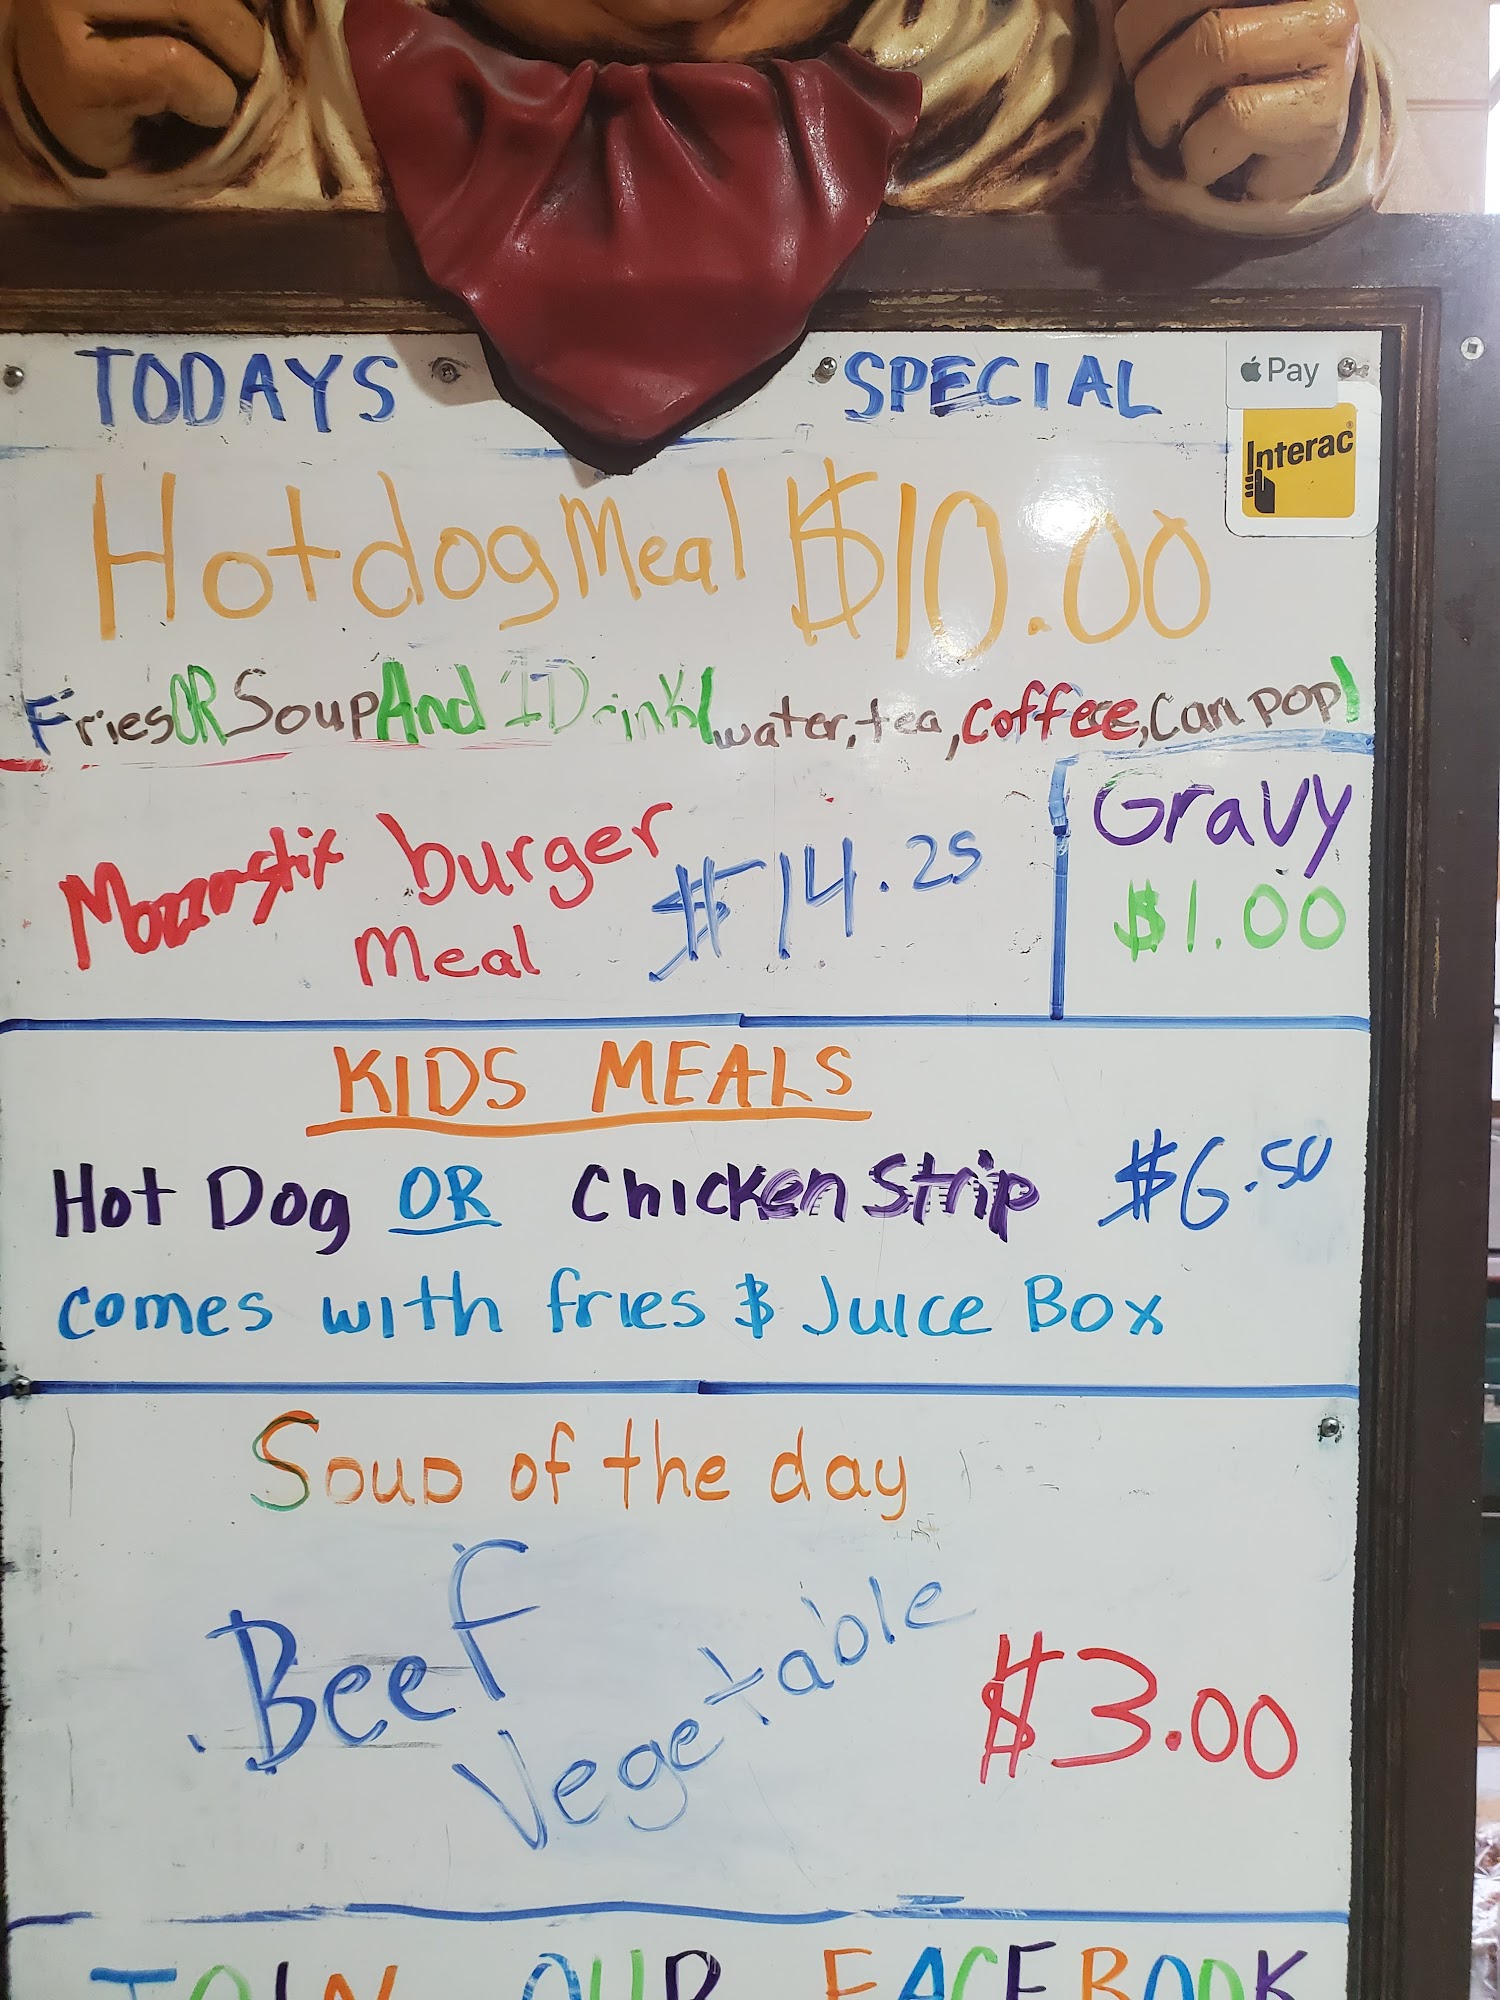 TODAYS SPECIAL
Pay
Interac
Hotdog Meal $10.00
Fries OR Soup And 1 Drink (water, tea, coffee, Can pop)
Mozzastix burger $14.25
Meal
Gravy
$1.00
KIDS MEALS
Hot Dog OR Chicken Strip $6.50
comes with fries & Juice Box
Soup of the day
Beef
Vegetable
$3.00
JOIN OUR FACEBOOK